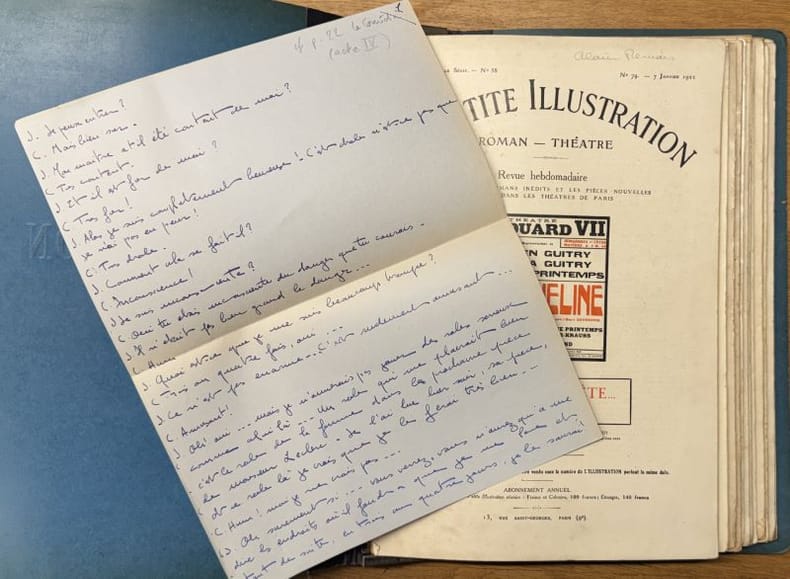 4 p. 22 le Comédi
(acte IV)
1
J. Je peux entrer ?
C. Mais bien sûr.
J. Mon maître a-t-il été content de moi ?
C. Très content.
J. Et il est fier de moi ?
C. Très fier !
J. Alors je suis complètement heureuse ! C'est drôle n'est-ce pas que
je n'ai pas eu peur !
C. Très drôle.
J. Comment cela se fait-il ?
C. Inconscience !
J. Je suis inconsciente ?
C. Oui tu étais inconsciente du danger que tu courais.
J. Il ne doit pas bien grand le danger...
C. Hum...
J. Quoi est-ce que je me suis beaucoup trompée ?
C. Trois ou quatre fois, oui...
J. Ce n'est pas énorme... C'est rudement amusant...
C. Amusant !
J. Oh ! oui... mais je n'aimerais pas jouer des rôles
comme celui-là... Un rôle qui me plairait bien
c'est le rôle de la femme dans la prochaine pièce
de monsieur Leclerc. Je l'ai lue hier soir, sa pièce,
et ce rôle là je crois que je le ferai très bien...
C. Hum ! moi je ne crois pas...
J. Oh, sûrement si... vous verrez, vous n'aurez qu'à me
dire les endroits où il faudra que je me lève et
tout de suite, en trois ou quatre jours, je le saurai
Alain Renais
Série. — N° 58
N° 79. — 7 Janvier 1922
TITE ILLUSTRATION
ROMAN — THÉATRE
Revue hebdomadaire
MANS INÉDITS ET LES PIÈCES NOUVELLES
DANS LES THÉATRES DE PARIS
THEATRE
OUARD VII
N GUITRY
A GUITRY
PRINTEMPS
ELINE
E PRINTEMPS
KRAUSS
ND
TE...
être vendu sans le numéro de L'ILLUSTRATION portant la même date.
ABONNEMENT ANNUEL
13, RUE SAINT-GEORGES, PARIS (9e)